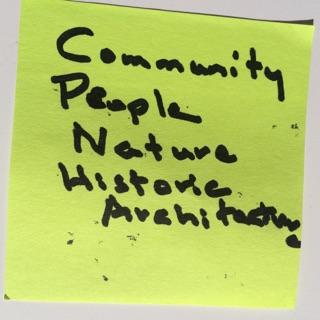 Community
People
Nature
Historic
Architecture